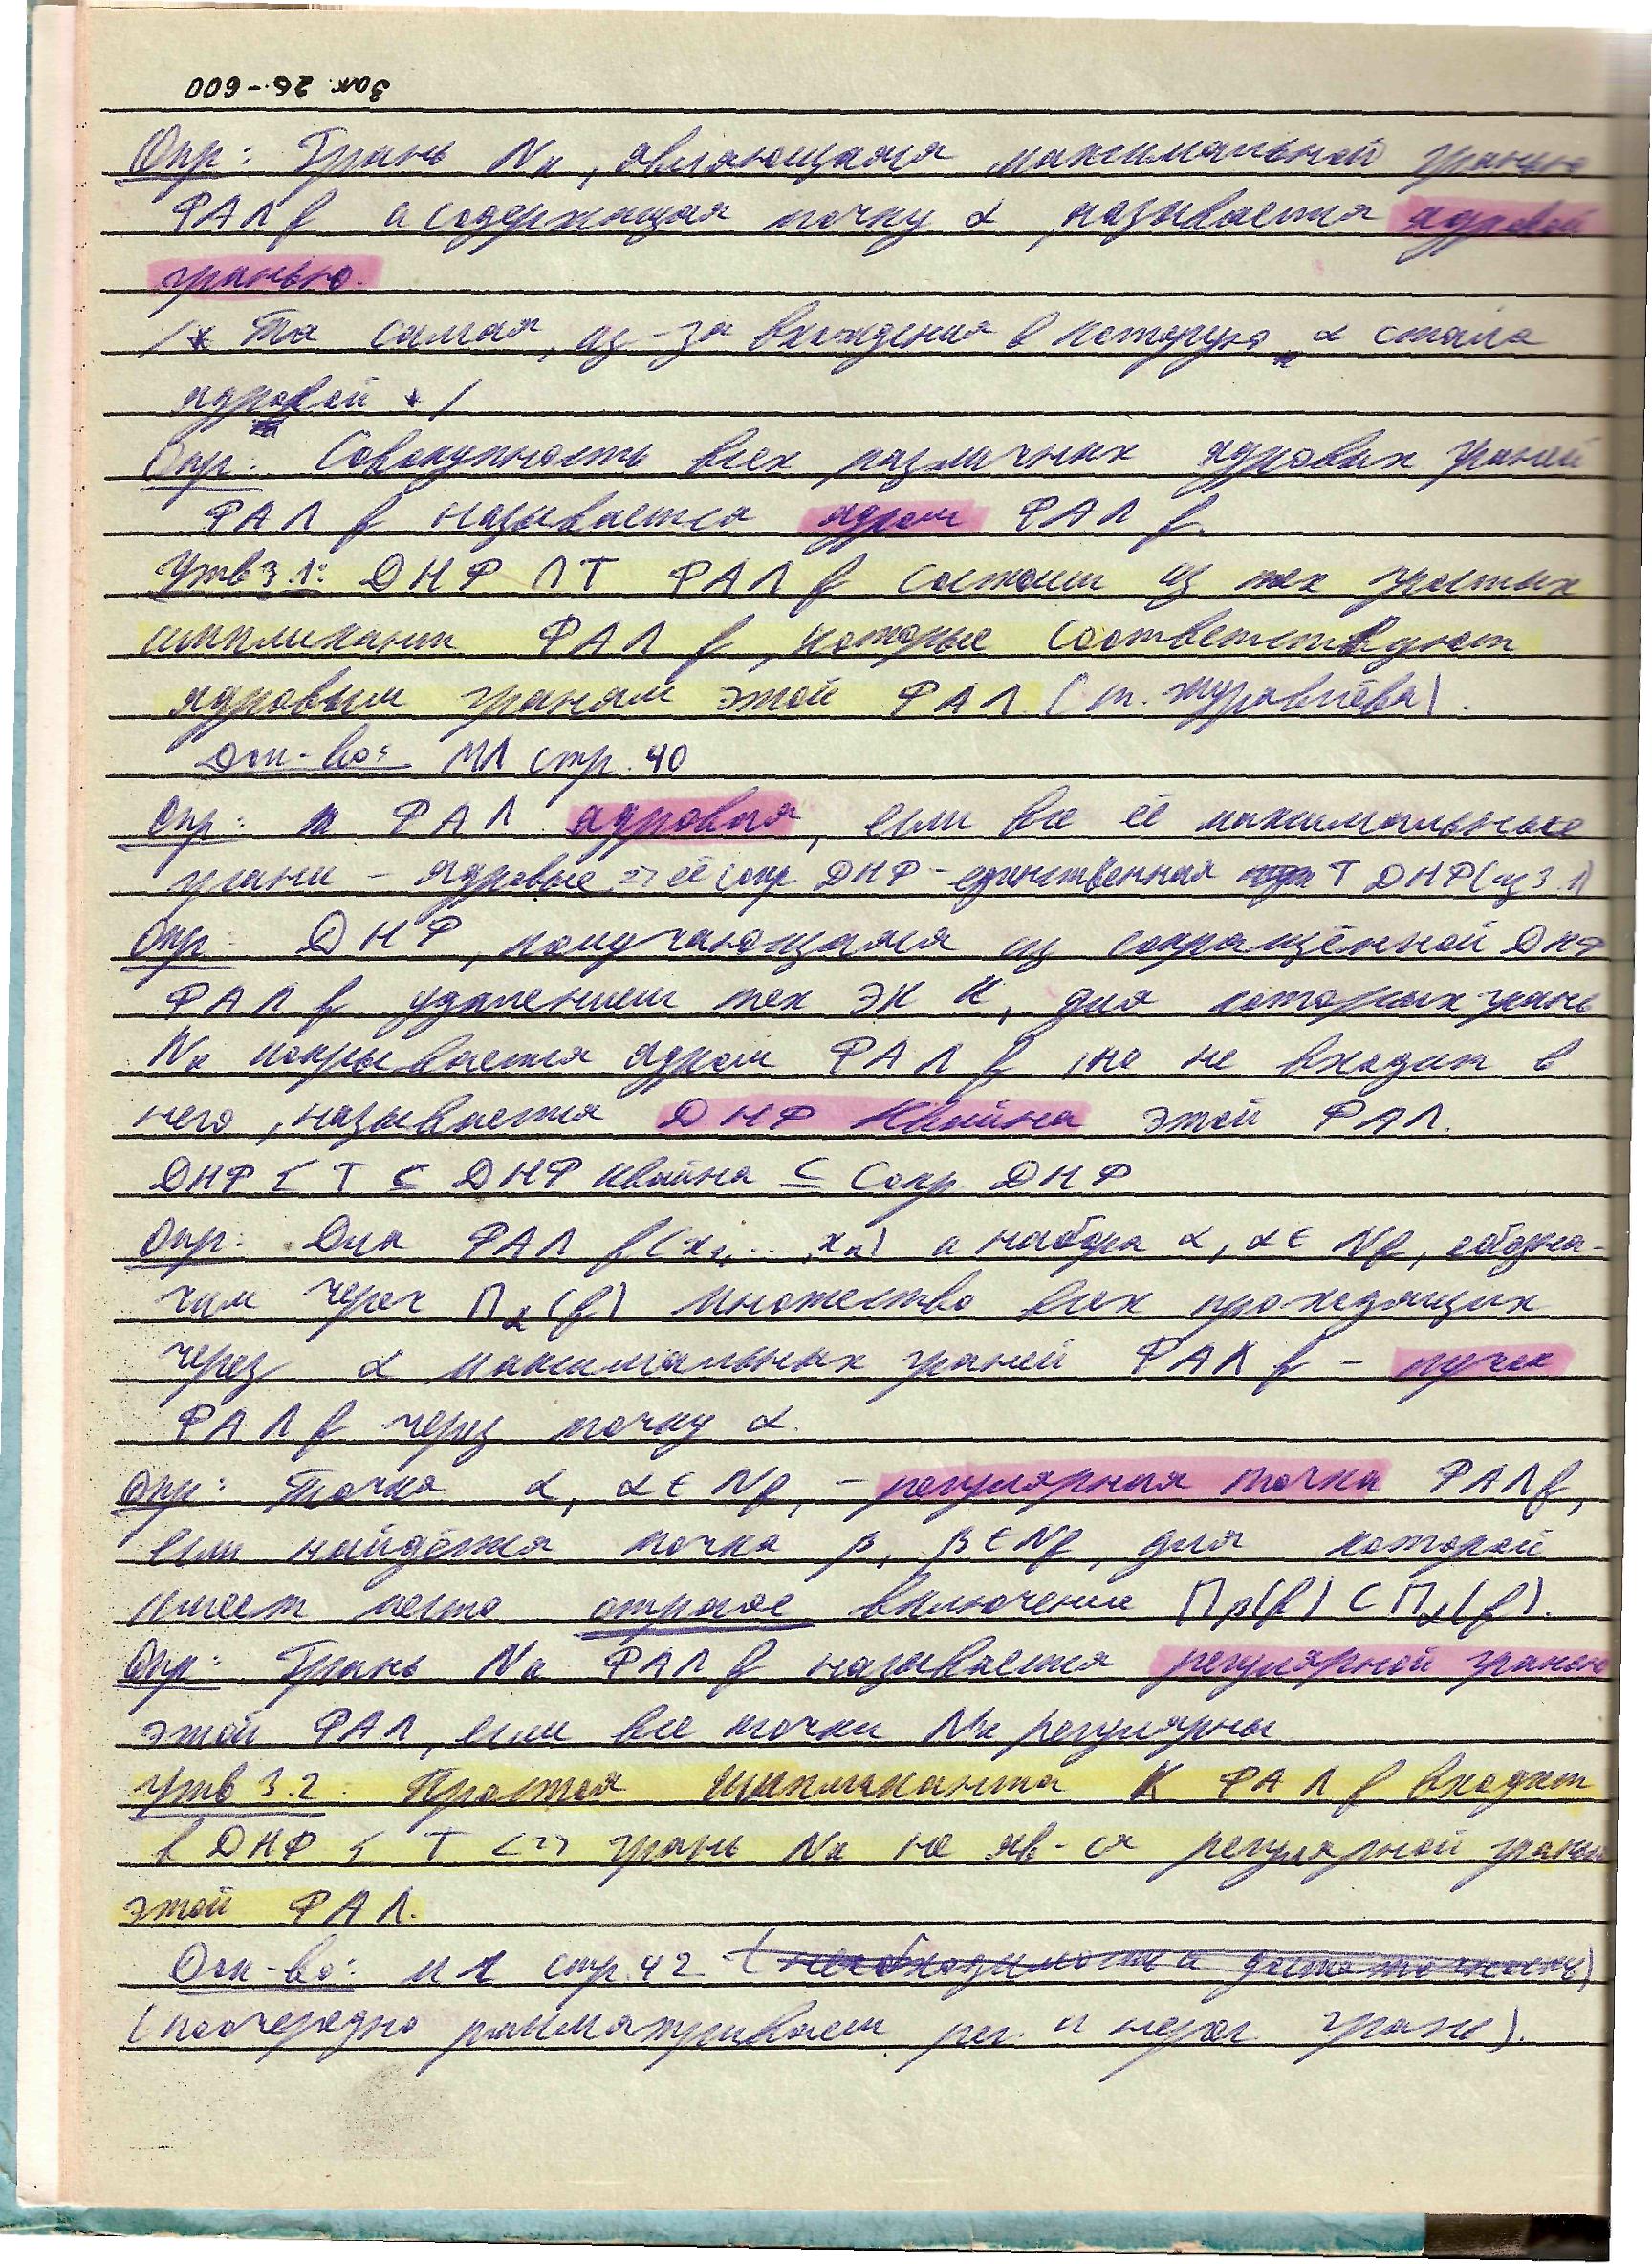 Зак. 26.-600
Опр: Грань Nк, являющаяся максимальной гранью
ФАЛ f и содержащая точку α, называется ядровой
гранью.
/* Та самая, из-за вхождения в которую α стала
ядровой */
Опр: Совокупность всех различных ядровых граней
ФАЛ f называется ядром ФАЛ f.
Утв 3.1: ДНФ ΠT ФАЛ f состоит из тех простых
импликант ФАЛ f, которые соответствуют
ядровым граням этой ФАЛ. (т. Журавлёва).
Док-во: МЛ стр. 40
Опр: ФАЛ ядровая, если все её максимальные
грани - ядровые => её сокр ДНФ - единственная T ДНФ (из 3.1)
Опр: ДНФ, получающаяся из сокращённой ДНФ
ФАЛ f удалением тех ЭК K, для которых грань
Nк покрывается ядром ФАЛ f, но не входит в
него, называется ДНФ Квайна этой ФАЛ.
ДНФ Σ T ⊆ ДНФ Квайна ⊆ Сокр ДНФ
Опр: Для ФАЛ f(x1, ..., xn) и набора α, α ∈ Nf, обозна-
чим через Πα(f) множество всех проходящих
через α максимальных граней ФАЛ f - пучок
ФАЛ f через точку α.
Опр: Точка α, α ∈ Nf, - регулярная точка ФАЛ f,
если найдётся точка β, β ∈ Nf, для которой
имеет место строгое включение Πβ(f) ⊂ Πα(f).
Опр: Грань Nк ФАЛ f называется регулярной гранью
этой ФАЛ, если все точки Nк регулярны
Утв 3.2: Простая импликанта K ФАЛ f входит
в ДНФ Σ T <=> грань Nк не яв-ся регулярной гранью
этой ФАЛ.
Док-во: МЛ стр. 42 (необходимость и достаточность)
(поочередно рассматриваем рег. и нерег грани).